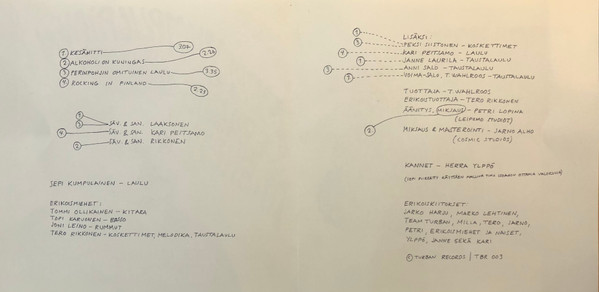 ① KESÄHITTI 3.06
② ALKOHOLI ON KUNINGAS 2.28
③ PEROSPOHJIN OMITUINEN LAULU 3.35
④ ROCKING IN FINLAND 2.23
① ③ SÄV. & SAN. LAAKSONEN
④ SÄV. & SAN. KARI PEITSAMO
② SÄV. & SAN. RIKKONEN
SEPI KUMPULAINEN – LAULU
ERIKOISMIEHET:
TOMMI OLLIKAINEN – KITARA
TOPI KARVONEN – BASSO
JONI LEINO – RUMMUT
TERO RIKKONEN – KOSKETTIMET, MELODICA, TAUSTALAULU
LISÄKSI:
PEKSI SIISTONEN – KOSKETTIMET
④ KARI PEITSAMO – LAULU
JANNE LAURILA – TAUSTALAULU
③ ANNI SALO – TAUSTALAULU
VOIMA-SALO, T. WAHLROOS – TAUSTALAULU
TUOTTAJA – T. WAHLROOS
ERIKOISTUOTTAJA – TERO RIKKONEN
ÄÄNITYS, MIKSAUS – PETRI LOPINA
(LEIPOMO STUDIOS)
MIKSAUS & MASTEROINTI – JARNO ALHO
(COSMIC STUDIOS)
KANNET – HERRA YLPPÖ
ERIKOISKIITOKSET:
JARKO HARJU, MARKO LEHTINEN,
TEAM TURBAN, MILLA, TERO, JARNO,
PETRI, ERIKOISMIEHET JA NAISET,
YLPPÖ, JANNE SEKÄ KARI
Ⓟ TURBAN RECORDS / TBR 003